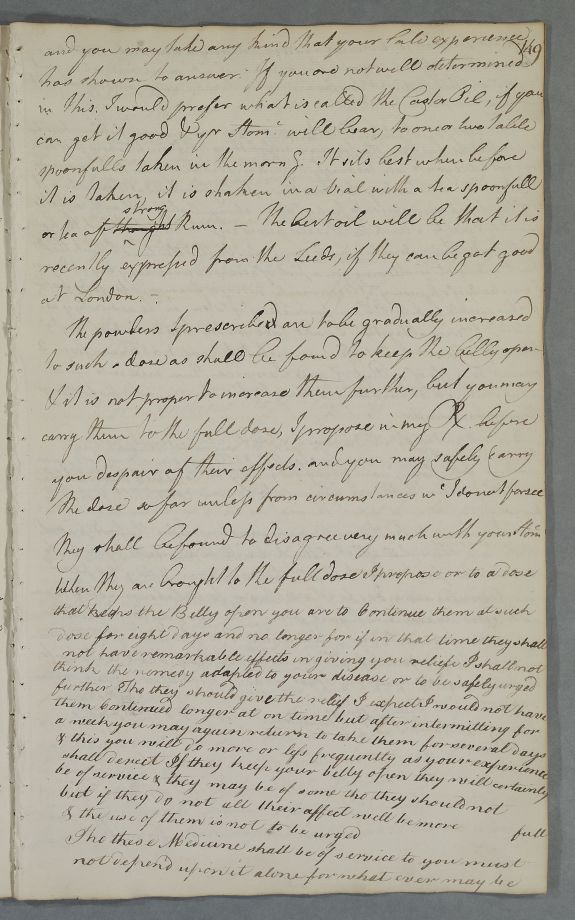 149
and you may take any kind that your late experience
has shown to answer. If you are not well determined
in this, I would prefer what is called the Castor Oil, if you
can get it good & yr Stom.c will bear, to one or two table
spoonfulls taken in the morng. It sits best when before
it is taken it is shaken in a vial with a tea spoonfull
strong
or tea of Rum. — The best oil will be that it is
recently expressed from the Seeds, if they can be got good
at London. —
The powders I prescribed are to be gradually increased
to such a dose as shall be found to keep the belly open
& it is not proper to increase them further, but you may
carry them to the full dose, I propose in my Rx. before
you despair of their effects. and you may safely carry
the dose so far unless from circumstances wc I do not forsee
they shall be found to disagree very much with your Stom
When they are brought to the full dose I propose or to a dose
that keeps the Belly open you are to Continue them at such
dose for eight days and no longer for if in that time they shall
not have remarkable effects in giving you relief I shall not
think the remedy adapted to your disease or to be safely urged
further Tho they should give the relief I expect I would not have
them Continued longer at on time but after intermitting for
a week you may again return to take them for several days
& this you will do more or less frequently as your experience
shall direct If they keep your belly open they will certainly
be of service & they may be of some tho they should not
but if they do not all their affect will be more
full
& the use of them is not to be urged
Tho these Medicine shall be of service to you must
not depend upon it alone for what ever may be